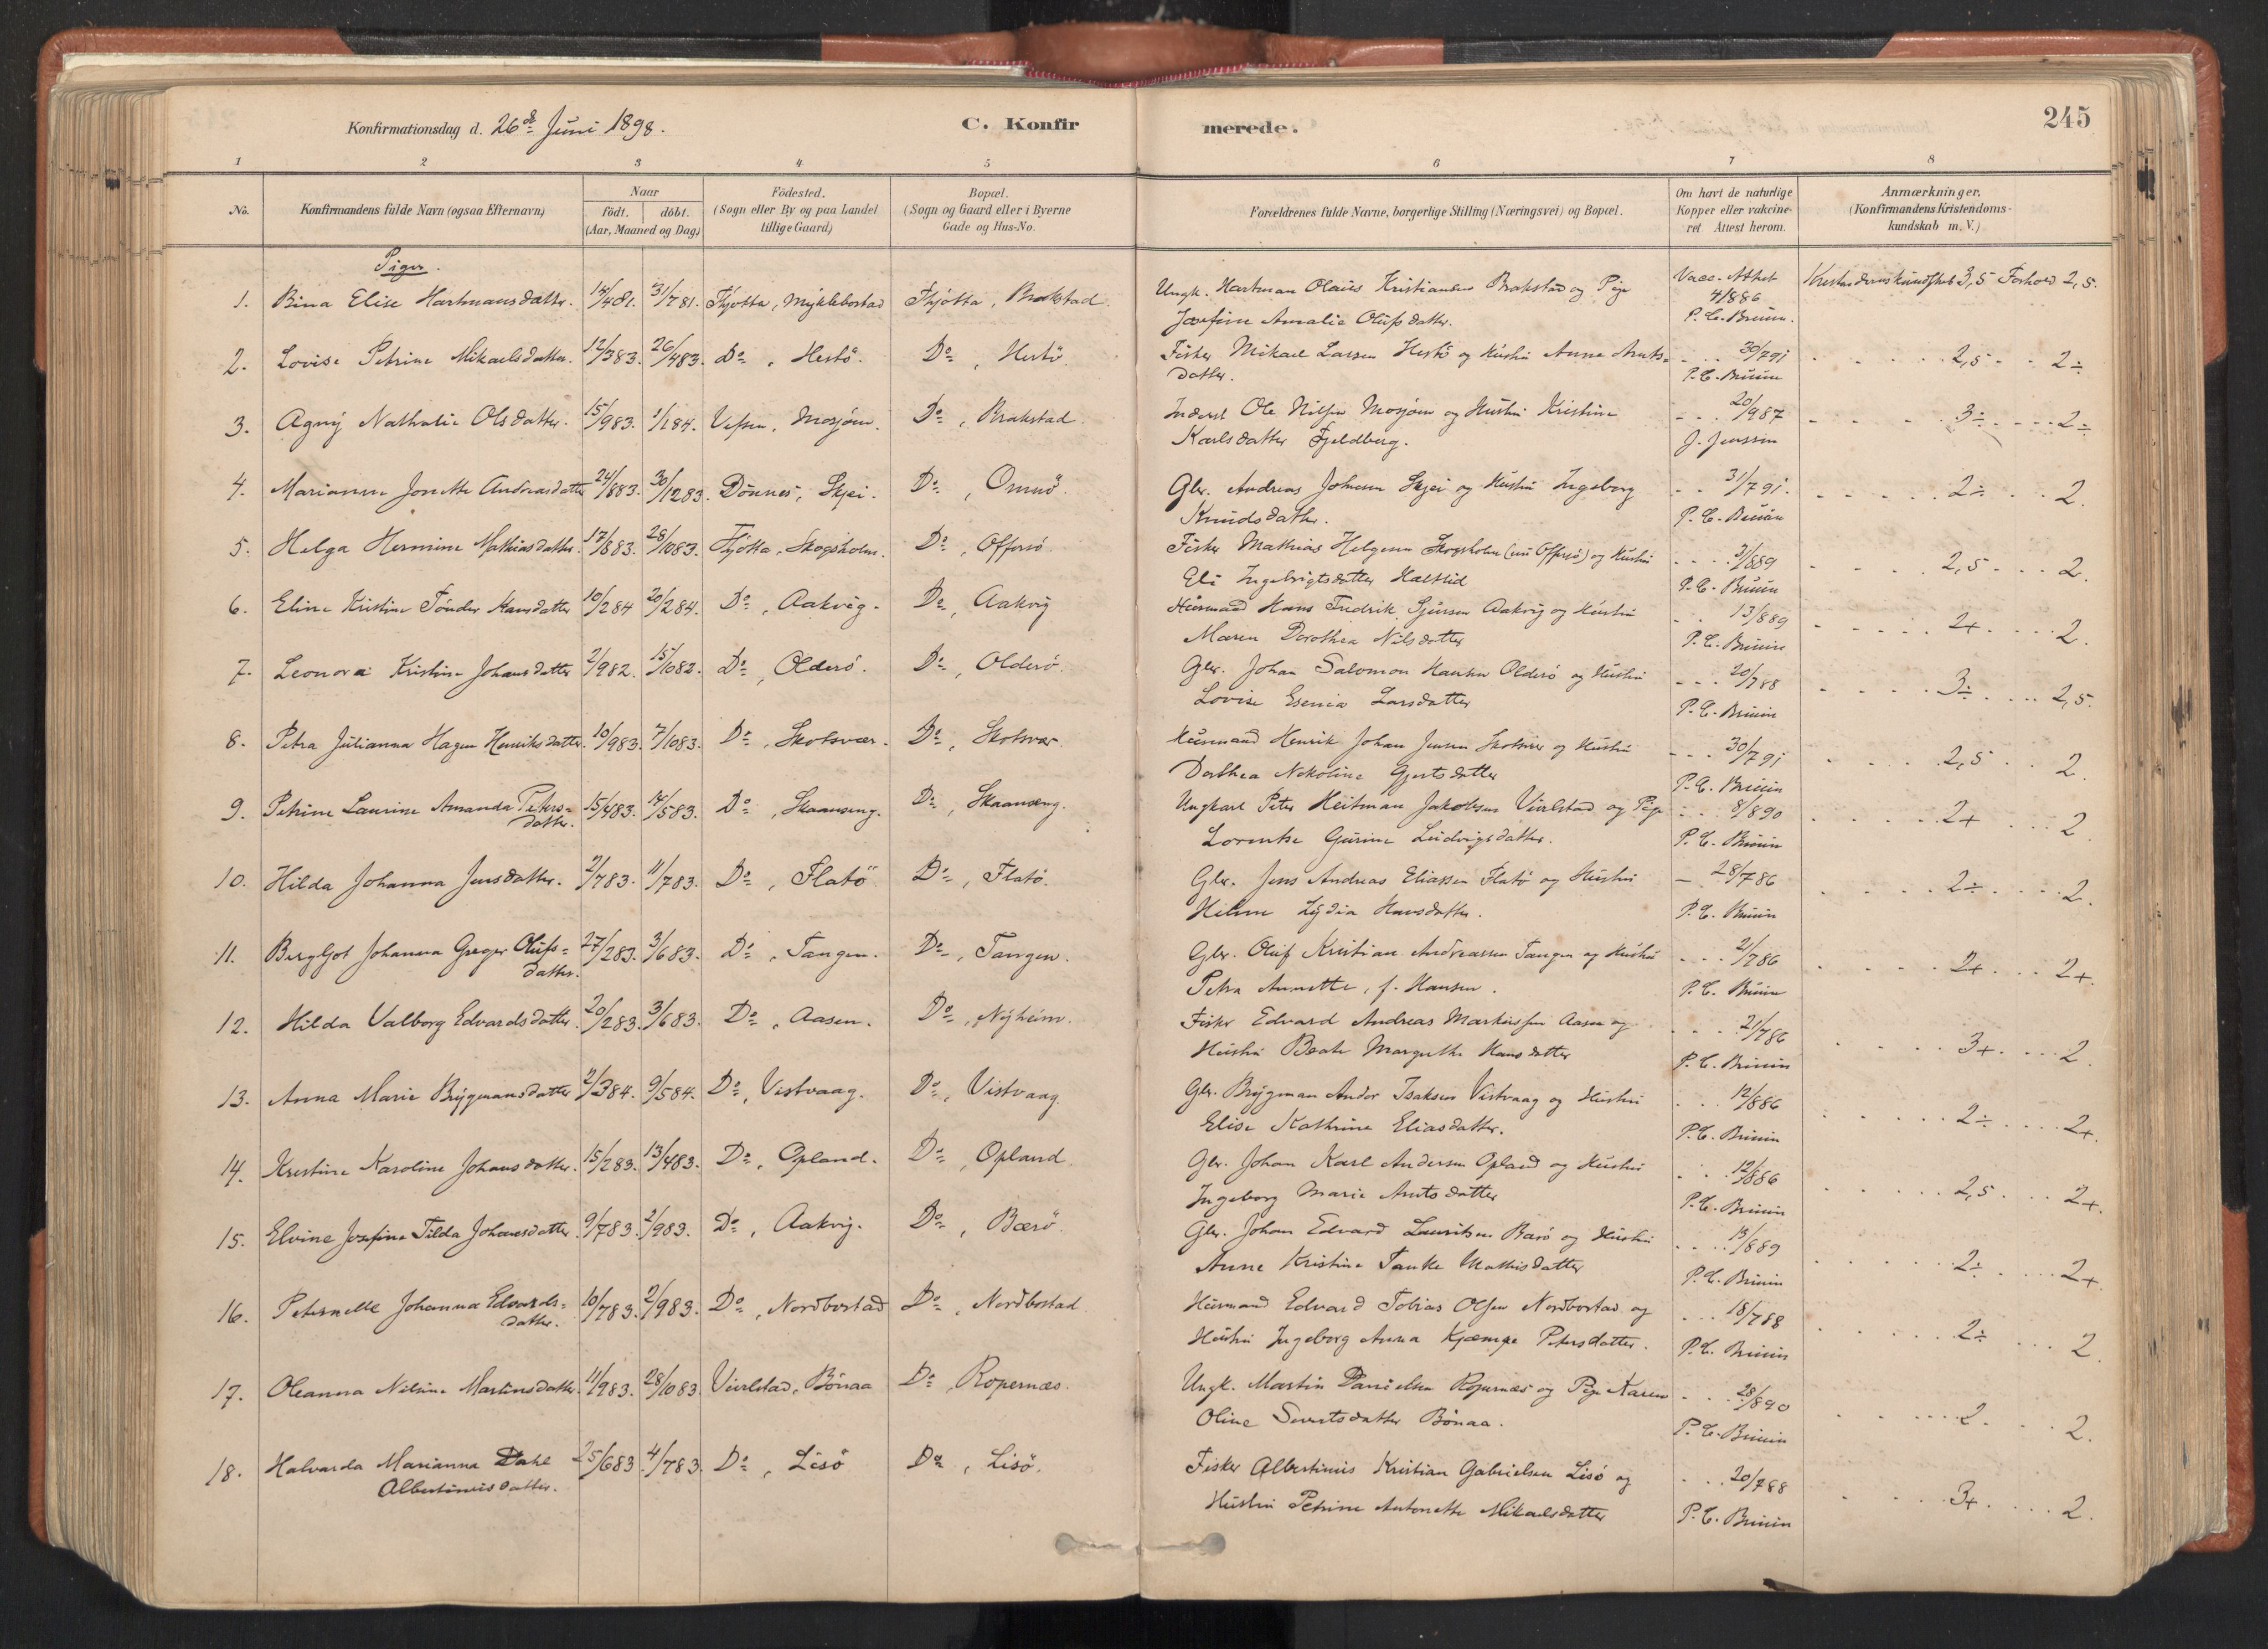 245
Konfirmationsdag d. 26de Juni 1898.
C. Konfirmerede.
1 2 3 4 5 6 7 8
No.
Konfirmandens fulde Navn (ogsaa Efternavn)
Naar
födt. döbt.
(Aar, Maaned og Dag)
Födested.
(Sogn eller By og paa Landet
tillige Gaard)
Bopæl.
(Sogn og Gaard eller i Byerne
Gade og Hus-No.
Forældrenes fulde Navne, borgerlige Stilling (Næringsvei) og Bopæl.
Om havt de naturlige
Kopper eller vakcine-
ret. Attest herom.
Anmærkninger.
(Konfirmandens Kristendoms-
kundskab m.V.)
Piger.
1. Bina Elise Hartmansdatter. 31/781. Thjotta, Myklebostad Thjøtta, Brakstad.
Ungk. Hartman Olaus Kristiansen Brakstad og Pige Vacc. Attest Kristendomskundskab 3,5 Forhold 2,5.
Josefine Amalie Olufsdatter. 4/886
P. C. Bruun.
2. Lovise Petrine Mikaelsdatter. 12/383. 26/483. Do, Hestö. Do, Hestö.
Fisker Mikael Larsen Hestö og Hustru Anne Arnts- 30/791 2,5 2÷
datter. P. C. Bruun
3. Agny Nathalie Olsdatter. 15/983. 1/184. Vefsen, Mosjøen. Do, Brakstad.
Inderst Ole Nilsen Mosjøen og Hustru Kristine 20/987 3÷ 2÷
Karlsdatter Fjeldberg. J. Jenssen
4. Marianne Jonette Andreasdatter 24/883. 30/1283. Dönnes, Skjei. Do, Omnö.
Gbr. Andreas Johnsen Skjei og Hustru Ingeborg 31/791. 2÷ 2.
Knudsdatter. P. C. Bruun
5. Helga Hermine Mathiasdatter. 17/883. 28/1083. Tjötta, Skogsholm. Do, Offersö.
Fisker Mathias Helgesen Skogsholm (nu Offersø) og Hustru 3/889 2,5 2.
Eli Ingebrigtsdatter Hatlid P. C. Bruun
6. Eline Kristine Tönder Hansdatter 10/284 20/284. Do, Aakvig. Do, Aakvig
Husmand Hans Fredrik Sjursen Aakvig og Hustru 13/889 2+ 2.
Maren Dorothea Nilsdatter P. C. Bruun
7. Leonora Kristine Johansdatter 2/982. 15/1082. Do, Olderö. Do, Olderö.
Gbr. Johan Salomon Hansen Olderö og Hustru 20/788 3÷ 2,5.
Lovise Esenia Larsdatter P. C. Bruun
8. Petra Julianna Hagen Henriksdatter. 10/983. 7/1083. Do, Skotsvær. Do, Skotsvær.
Husmand Henrik Johan Jensen Skotsvær og Hustru 30/791 2,5 2.
Dorthea Nekoline Gjertsdatter P. C. Bruun
9. Petrine Laurine Amanda Peters- 15/483. 14/583. Do, Skaanseng. Do, Skaanseng.
datter.
Ungkarl Peter Heitman Jakobsen Vivelstad og Pige 8/890 2+ 2
Lorentse Gurine Ludvigsdatter. P. C. Bruun
10. Hilda Johanna Jensdatter. 2/783. 11/783. Do, Flatö Do, Flatö.
Gbr. Jens Andreas Eliassen Flatö og Hustru 28/786 2÷ 2.
Hilme Lydia Hansdatter. P. C. Bruun
11. Bergljot Johanna Greger Olufs- 27/283. 3/683. Do, Tangen. Do, Tangen.
datter.
Gbr. Oluf Kristian Andreassen Tangen og Hustru 21/786 2+ 2+.
Petra Annette, f. Hansen. P. C. Bruun
12. Hilda Valborg Edvardsdatter. 20/283. 3/683. Do, Aasen. Do, Nyheim.
Fisker Edvard Andreas Markussen Aasen og 21/786 3+ 2.
Hustru Beate Margrethe Hansdatter P. C. Bruun
13. Anna Marie Brygmansdatter 2/384. 9/584. Do, Vistvaag. Do, Vistvaag.
Gbr. Brygman Andor Isaksen Vistvaag og Hustru 12/886 2÷ 2+.
Elise Kathrine Eliasdatter. P. C. Bruun
14. Kristine Karoline Johansdatter. 15/283. 13/483. Do, Opland. Do, Opland.
Gbr. Johan Karl Andersen Opland og Hustru 12/886 2,5 2+.
Ingeborg Marie Arntsdatter P. C. Bruun
15. Elvine Josefine Tilda Johansdatter. 9/783. 2/983. Do, Aakvig. Do, Bærö.
Gbr. Johan Edvard Lauritsen Bærö og Hustru 13/889 2÷ 2+.
Anne Kristine Tanke Mathisdatter P. C. Bruun
16. Peternelle Johanna Edvards- 10/783. 2/983. Do, Nordbostad Do, Nordbostad
datter.
Husmand Edvard Tobias Olsen Nordbostad og 18/788 2÷ 2.
Hustru Ingeborg Anna Kjæmpe Petersdatter. P. C. Bruun
17. Oleanna Nilsine Martinsdatter. 11/983. 28/1083 Vivelstad, Bönaa Do, Ropernæs.
Ungk. Martin Danielsen Ropernæs og Pige Karen 28/890 2. 2.
Oline Sivertsdatter Bönaa. P. C. Bruun
18. Halvarda Marianna Dahl 25/683 4/783. Do, Lisö Do, Lisö.
Albertinusdatter.
Fisker Albertinius Kristian Gabrielsen Lisö og 20/788 3+ 2.
Hustru Petrine Antonette Mikaelsdatter P. C. Bruun